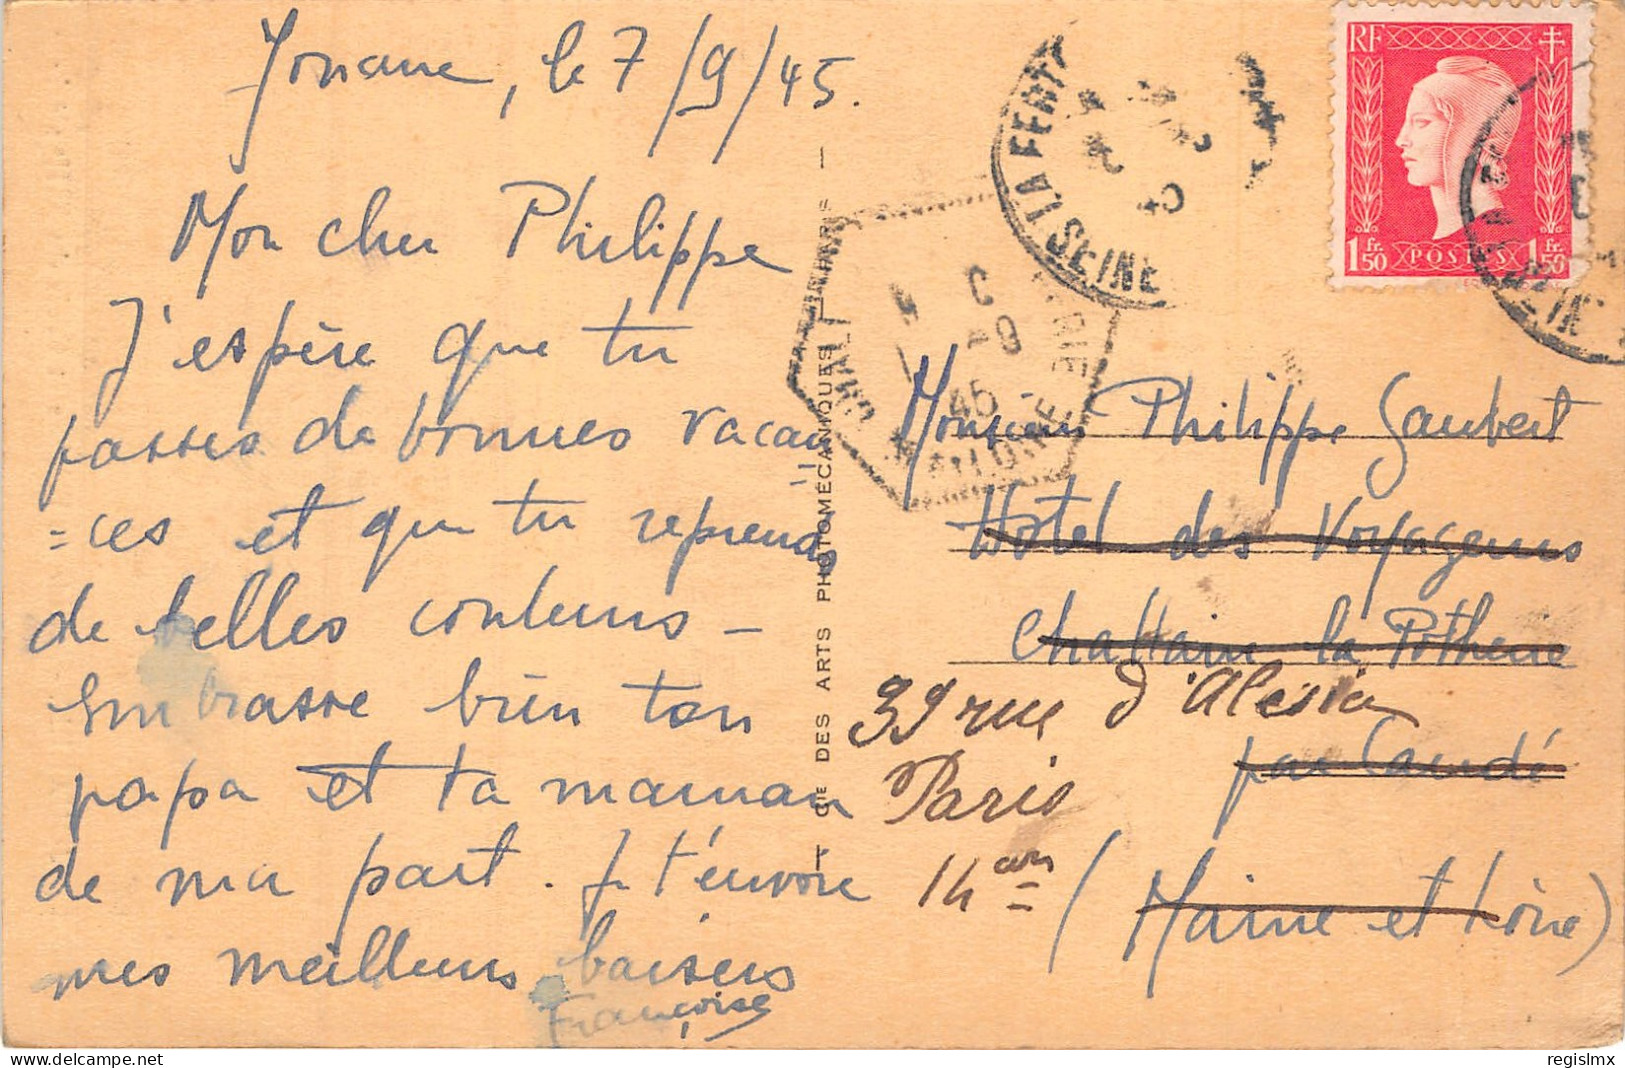 Jouarre, le 7/9/45.
Mon cher Philippe
J'espère que tu
passes de bonnes vacan
=ces et que tu reprends
de belles couleurs -
Embrasse bien ton
papa et ta maman
de ma part. Je t'envoie
mes meilleurs baisers
Françoise
CIE DES ARTS PHOTOMÉCANIQUES PARIS
LA FERTÉ
SEINE
45
MAINE
RF
1 Fr. 50 POSTES 1 Fr. 50
Monsieur Philippe Gaubert
Hôtel des Voyageurs
Challain la Potherie
39 rue d'Alésia
par Candé
Paris
14 em
(Maine et Loire)
regislmx